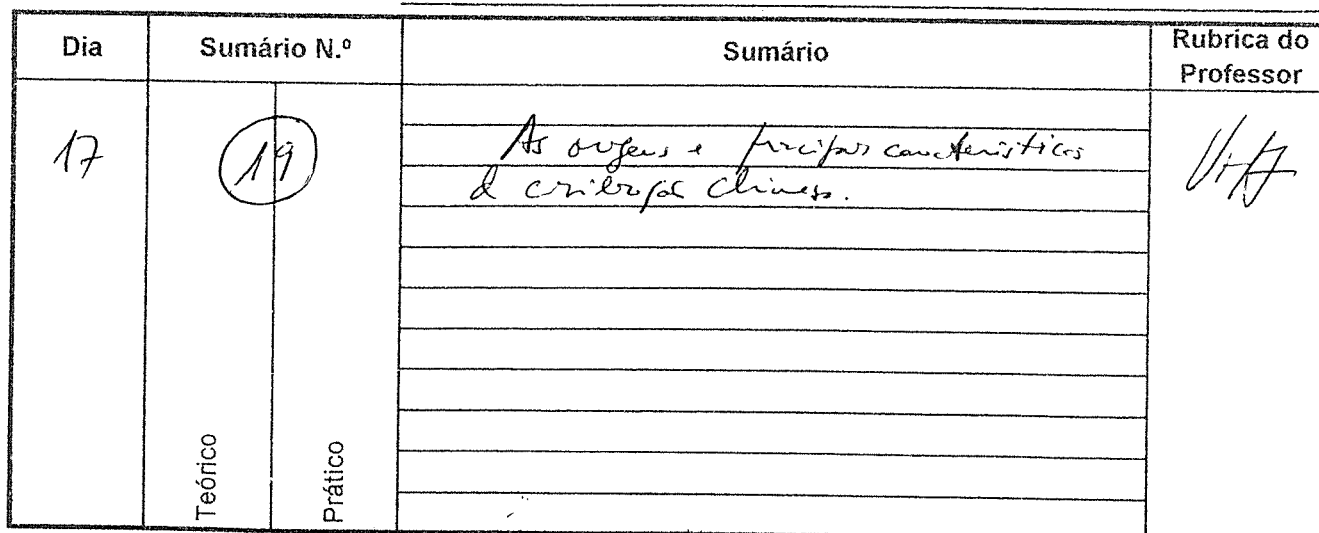 Dia Sumário N.º Sumário Rubrica do Professor
17 19 As origens e principais características
da civilização chinesa.
Teórico Prático